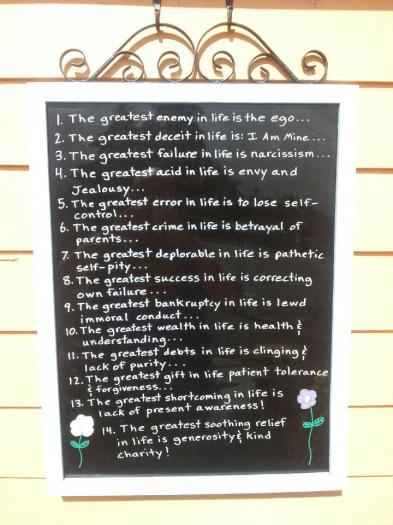 1. The greatest enemy in life is the ego...
2. The greatest deceit in life is: I Am Mine...
3. The greatest failure in life is narcissism...
4. The greatest acid in life is envy and
Jealousy...
5. The greatest error in life is to lose self-
control...
6. The greatest crime in life is betrayal of
parents...
7. The greatest deplorable in life is pathetic
self-pity...
8. The greatest success in life is correcting
own failure...
9. The greatest bankruptcy in life is lewd
immoral conduct...
10. The greatest wealth in life is health &
understanding...
11. The greatest debts in life is clinging &
lack of purity...
12. The greatest gift in life patient tolerance
& forgiveness...
13. The greatest shortcoming in life is
lack of present awareness!
14. The greatest soothing relief
in life is generosity & kind
charity!